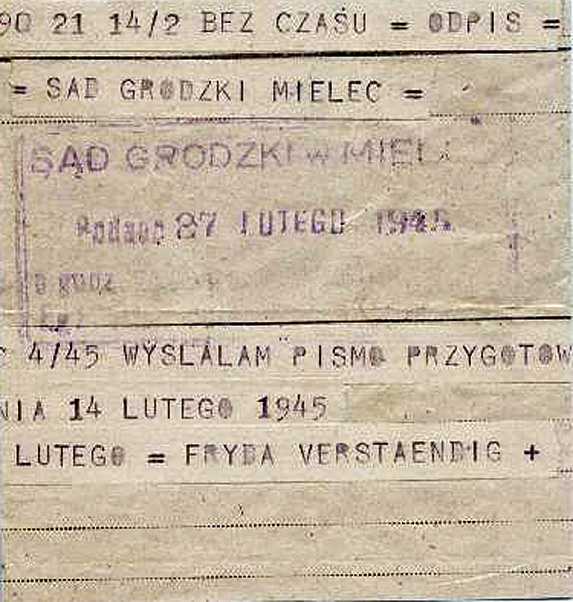 90 21 14/2 BEZ CZASU = ODPIS =
= SAD GRODZKI MIELEC =
SĄD GRODZKI w MIEL
Podano 27 LUTEGO 1945
4/45 WYSLALAM PISMO PRZYGOTOW
NIA 14 LUTEGO 1945
LUTEGO = FRYDA VERSTAENDIG +